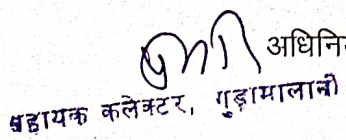 अधिनि
सहायक कलेक्टर, गुड़ामालानी